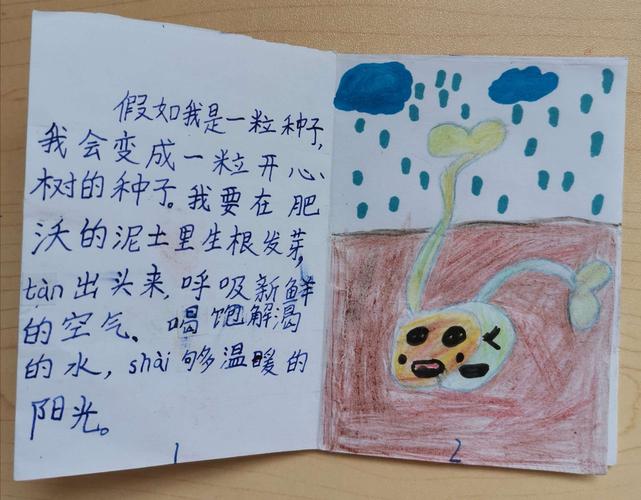 假如我是一粒种子,
我会变成一粒开心
树的种子。我要在肥
沃的泥土里生根发芽,
tàn出头来,呼吸新鲜
的空气、喝饱解渴
的水,shài够温暖的
阳光。
1
2